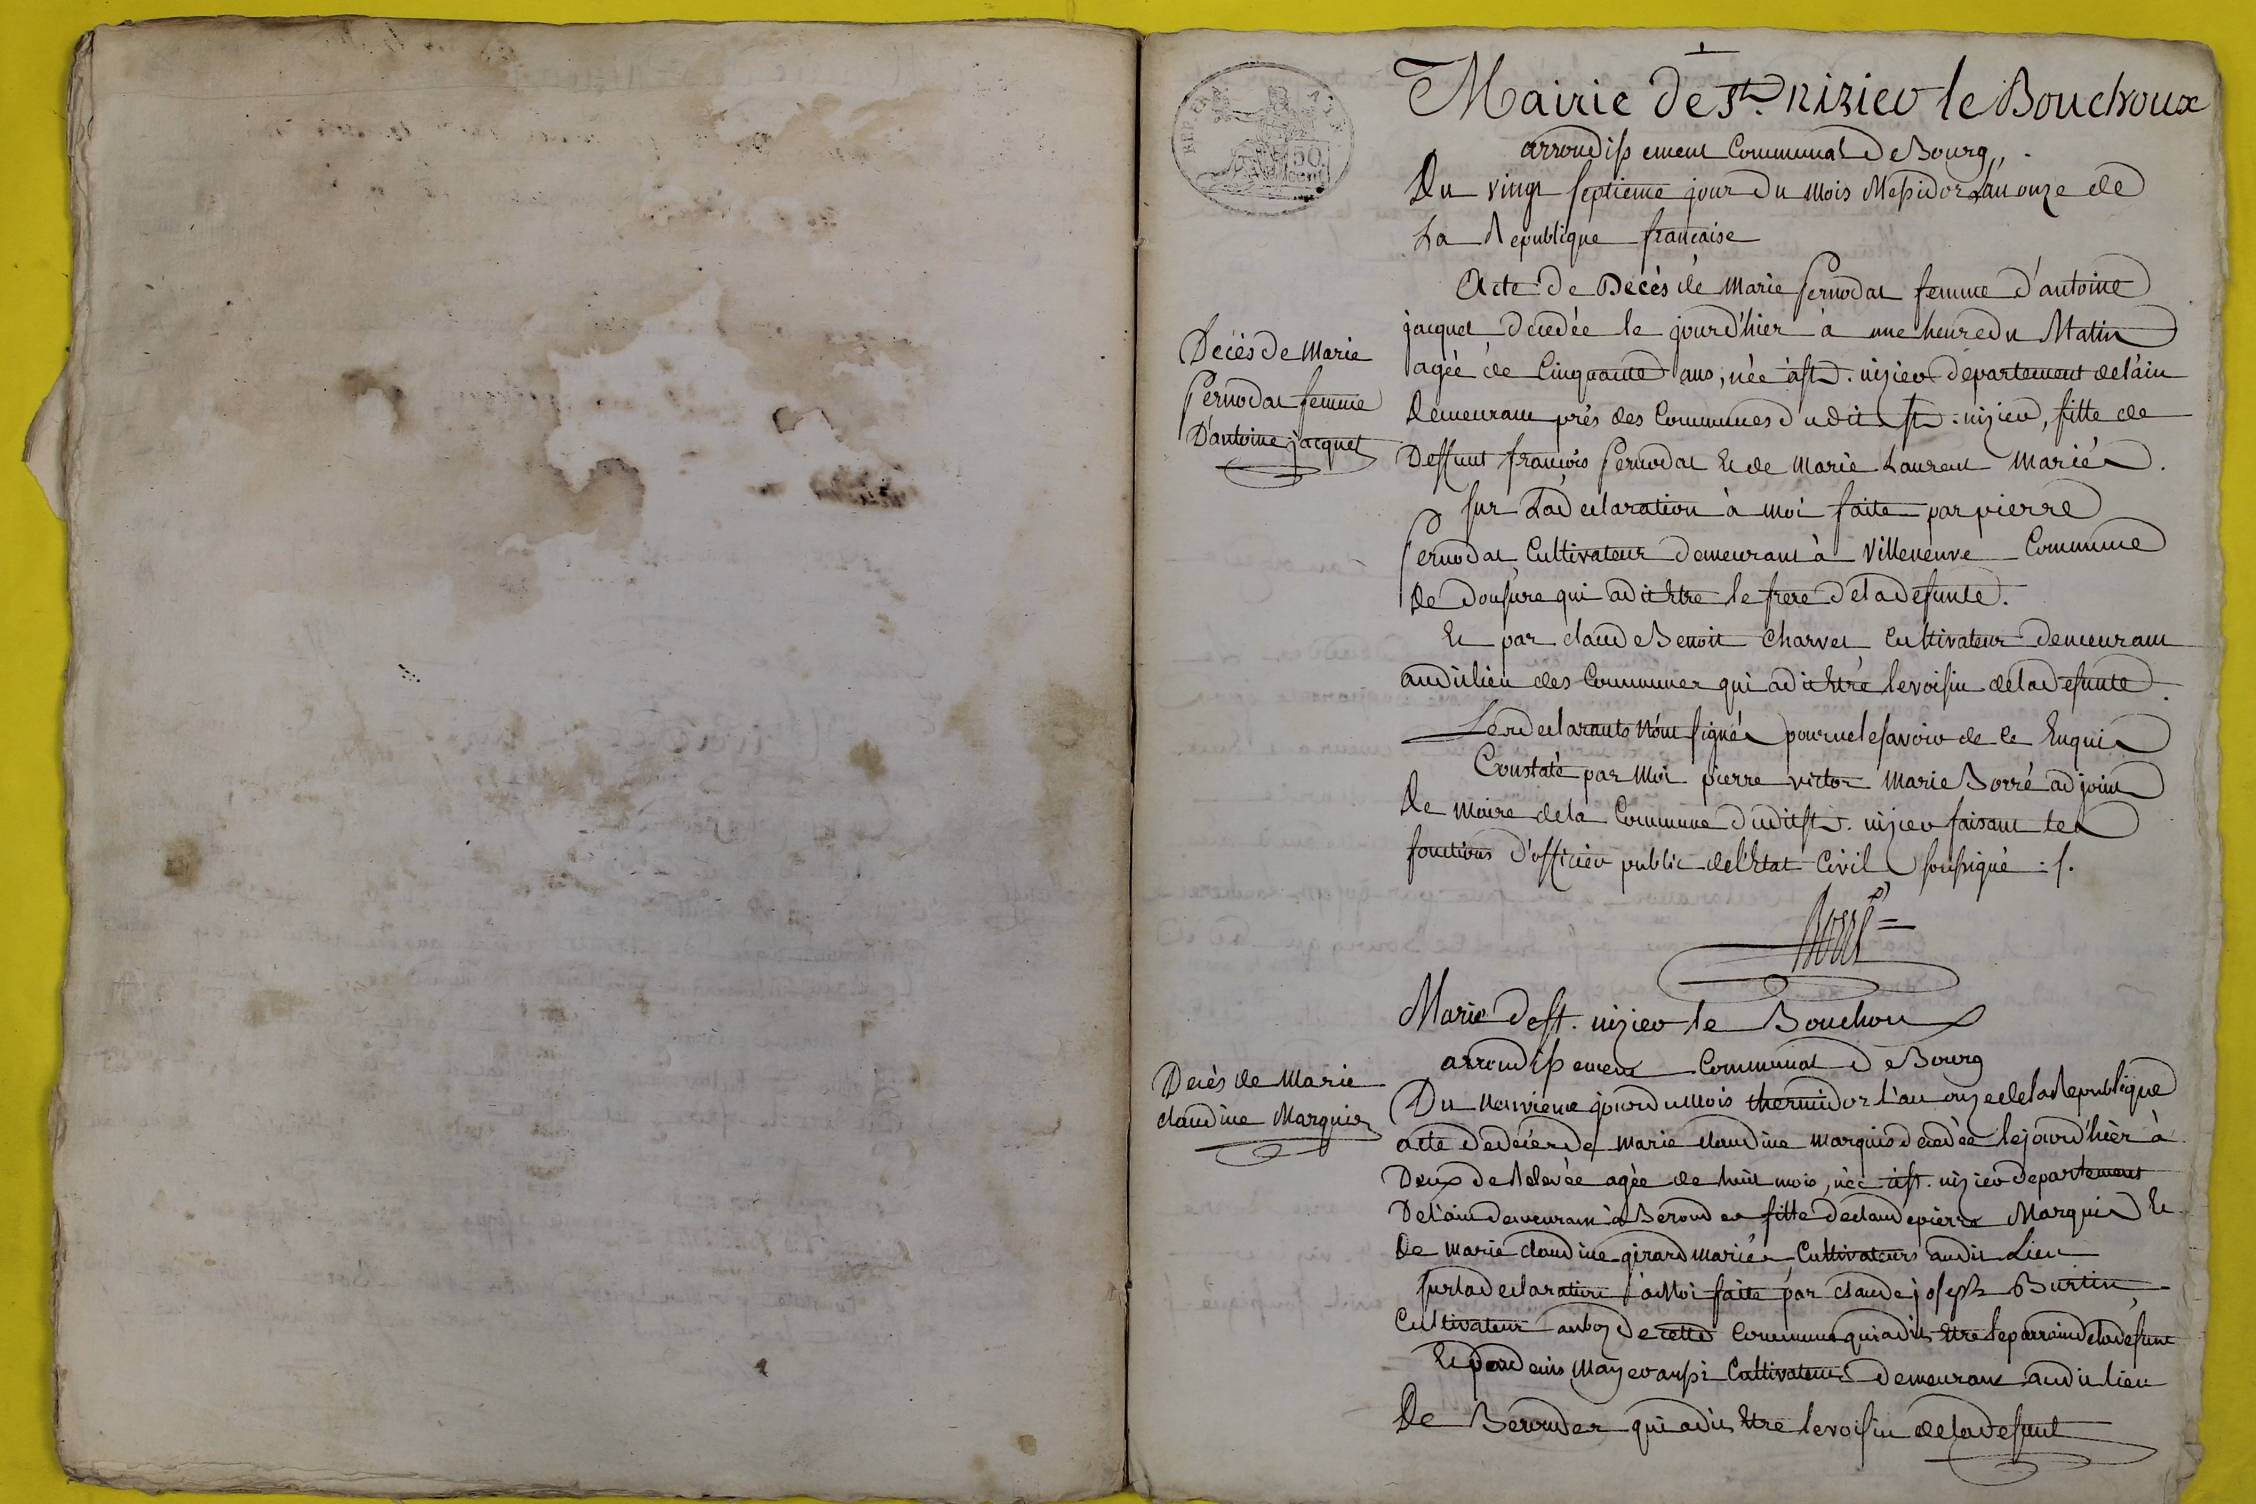 1
REP. FRA.
50
cent
Mairie de St. nizier le Bouchoux
arrondissement Communal de Bourg,, .
Du vingt septieme jour du mois Messidor L'an onze de
La Republique française
Décès de Marie
Pernodat femme
D'antoine jacquet
Acte de Decès de Marie Pernodat femme d'antoine
jacquet decedée le jourd'hier à une heure du Matin
agée de Cinquante ans, née à St. nizier departement de l'ain
demeurant près des Communes dudit St. nizier, fille de
Deffunt françois Pernodat et de Marie Laurent Mariés.
sur La declaration à moi faite par pierre
Pernodat Cultivateur demeurant à Villeneuve Commune
de Domsure qui a dit être le frere de la defunte.
Et par claude Benoit Charvet Cultivateur demeurant
audit lieu des Communes qui a dit être le voisin de la defunte.
Les declarants N'ont signés pour ne le savoir de ce Enquis
Constaté par Moi pierre victor Marie Borré adjoint
de maire de la Commune dudit St. nizier faisant les
fonctions d'officier public de l'Etat Civil soussigné : /.
Borré
Marie de St. nizier le Bouchoux
arrondissement Communal de Bourg
Decès de Marie
claudine Marquis
Du Neuvieme jour du mois thermidor l'an onze de la Republique
acte de décès de marie claudine marquis decedée le jourd'hièr à
Deux de Relevée agée de huit mois, née à St. nizier departement
De l'ain demeurant à Berouder fille de claude pierre Marquis et
de marie claudine girard mariés Cultivateurs audit Lieu
sur la declaration à Moi faite par claude joseph Burtin,
Cultivateur au boz de cette Commune qui a dit être le parrain de la defunt
Et par denis Mayer aussi Cultivateur demeurant audit lieu
De Berouder qui a dit Etre le voisin de la defunt